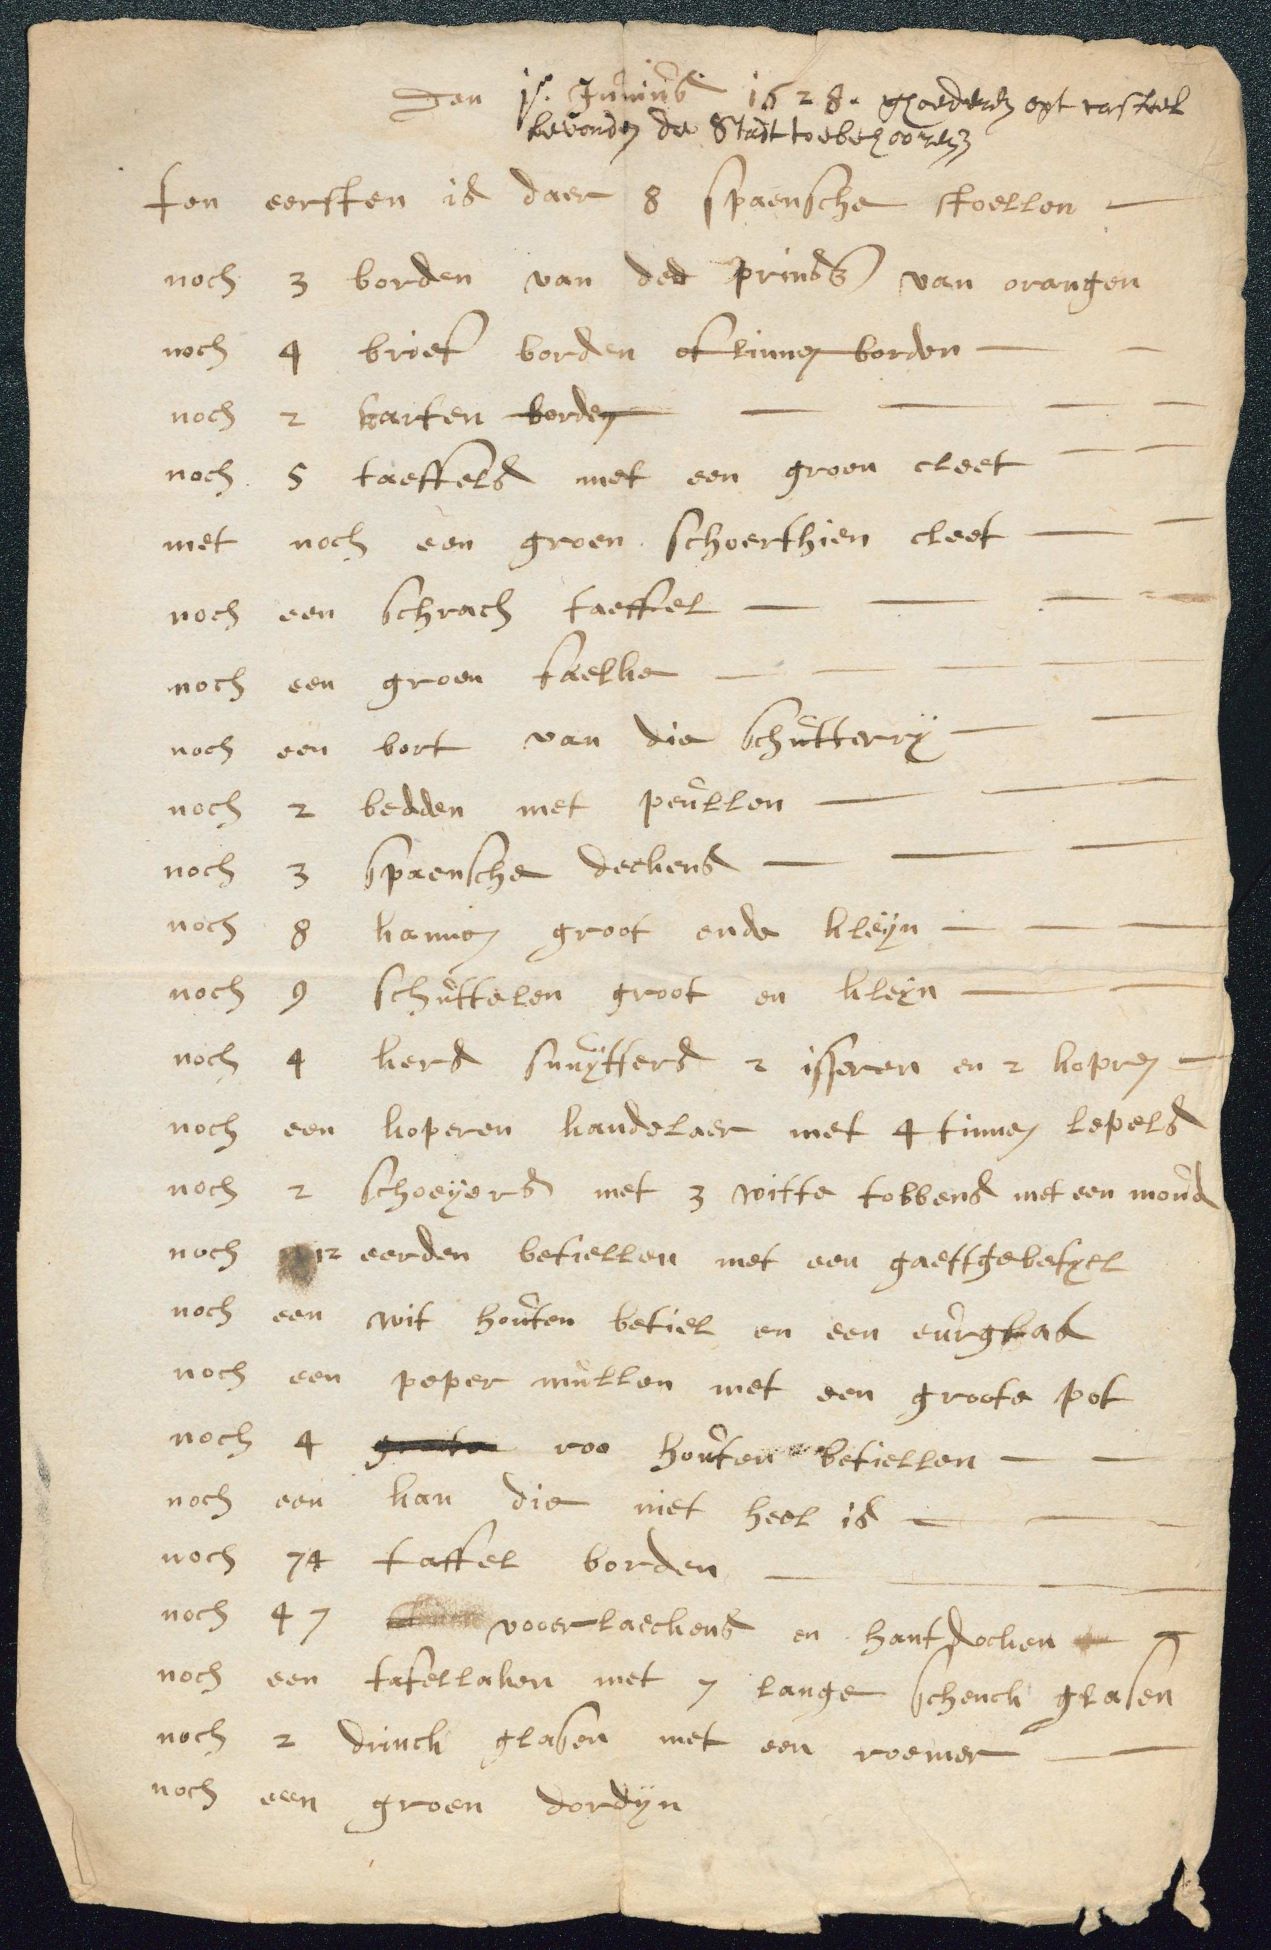 den 1sn. Junius 1628. goederen opt casteel
bevonden de Stadt toebehoorende
ten eersten is daer 8 spaensche stoellen
noch 3 borden van des prinss van orangen
noch 4 brief borden of linnen borden
noch 2 karten borden
noch 5 taeffels met een groen cleet
met noch een groen schoerthien cleet
noch een schrach taeffel
noch een groen
noch een bort van die schutterry
noch 2 bedden met peullen
noch 3 spaensche deckens
noch 8 kannen groot ende kleyn
noch 9 schuttelen groot en kleyn
noch 4 kers snuytters 2 isseren en 2 kopren
noch een koperen kandelaer met 4 tinnen lepels
noch 2 schoeyers met 3 witte tobbens met een mond
noch 12 eerden betiellen met een
noch een wit houten betiel en een eurglas
noch een peper mullen met een groote pot
noch 4 groote roo houten betiellen
noch een kan die niet heel is
noch 74 taffel borden
noch 47 vooerlaeckens en hantdocken
noch een tafellaken met 7 lange schenck glasen
noch 2 drinck glasen met een roemer
noch een groen dordyn